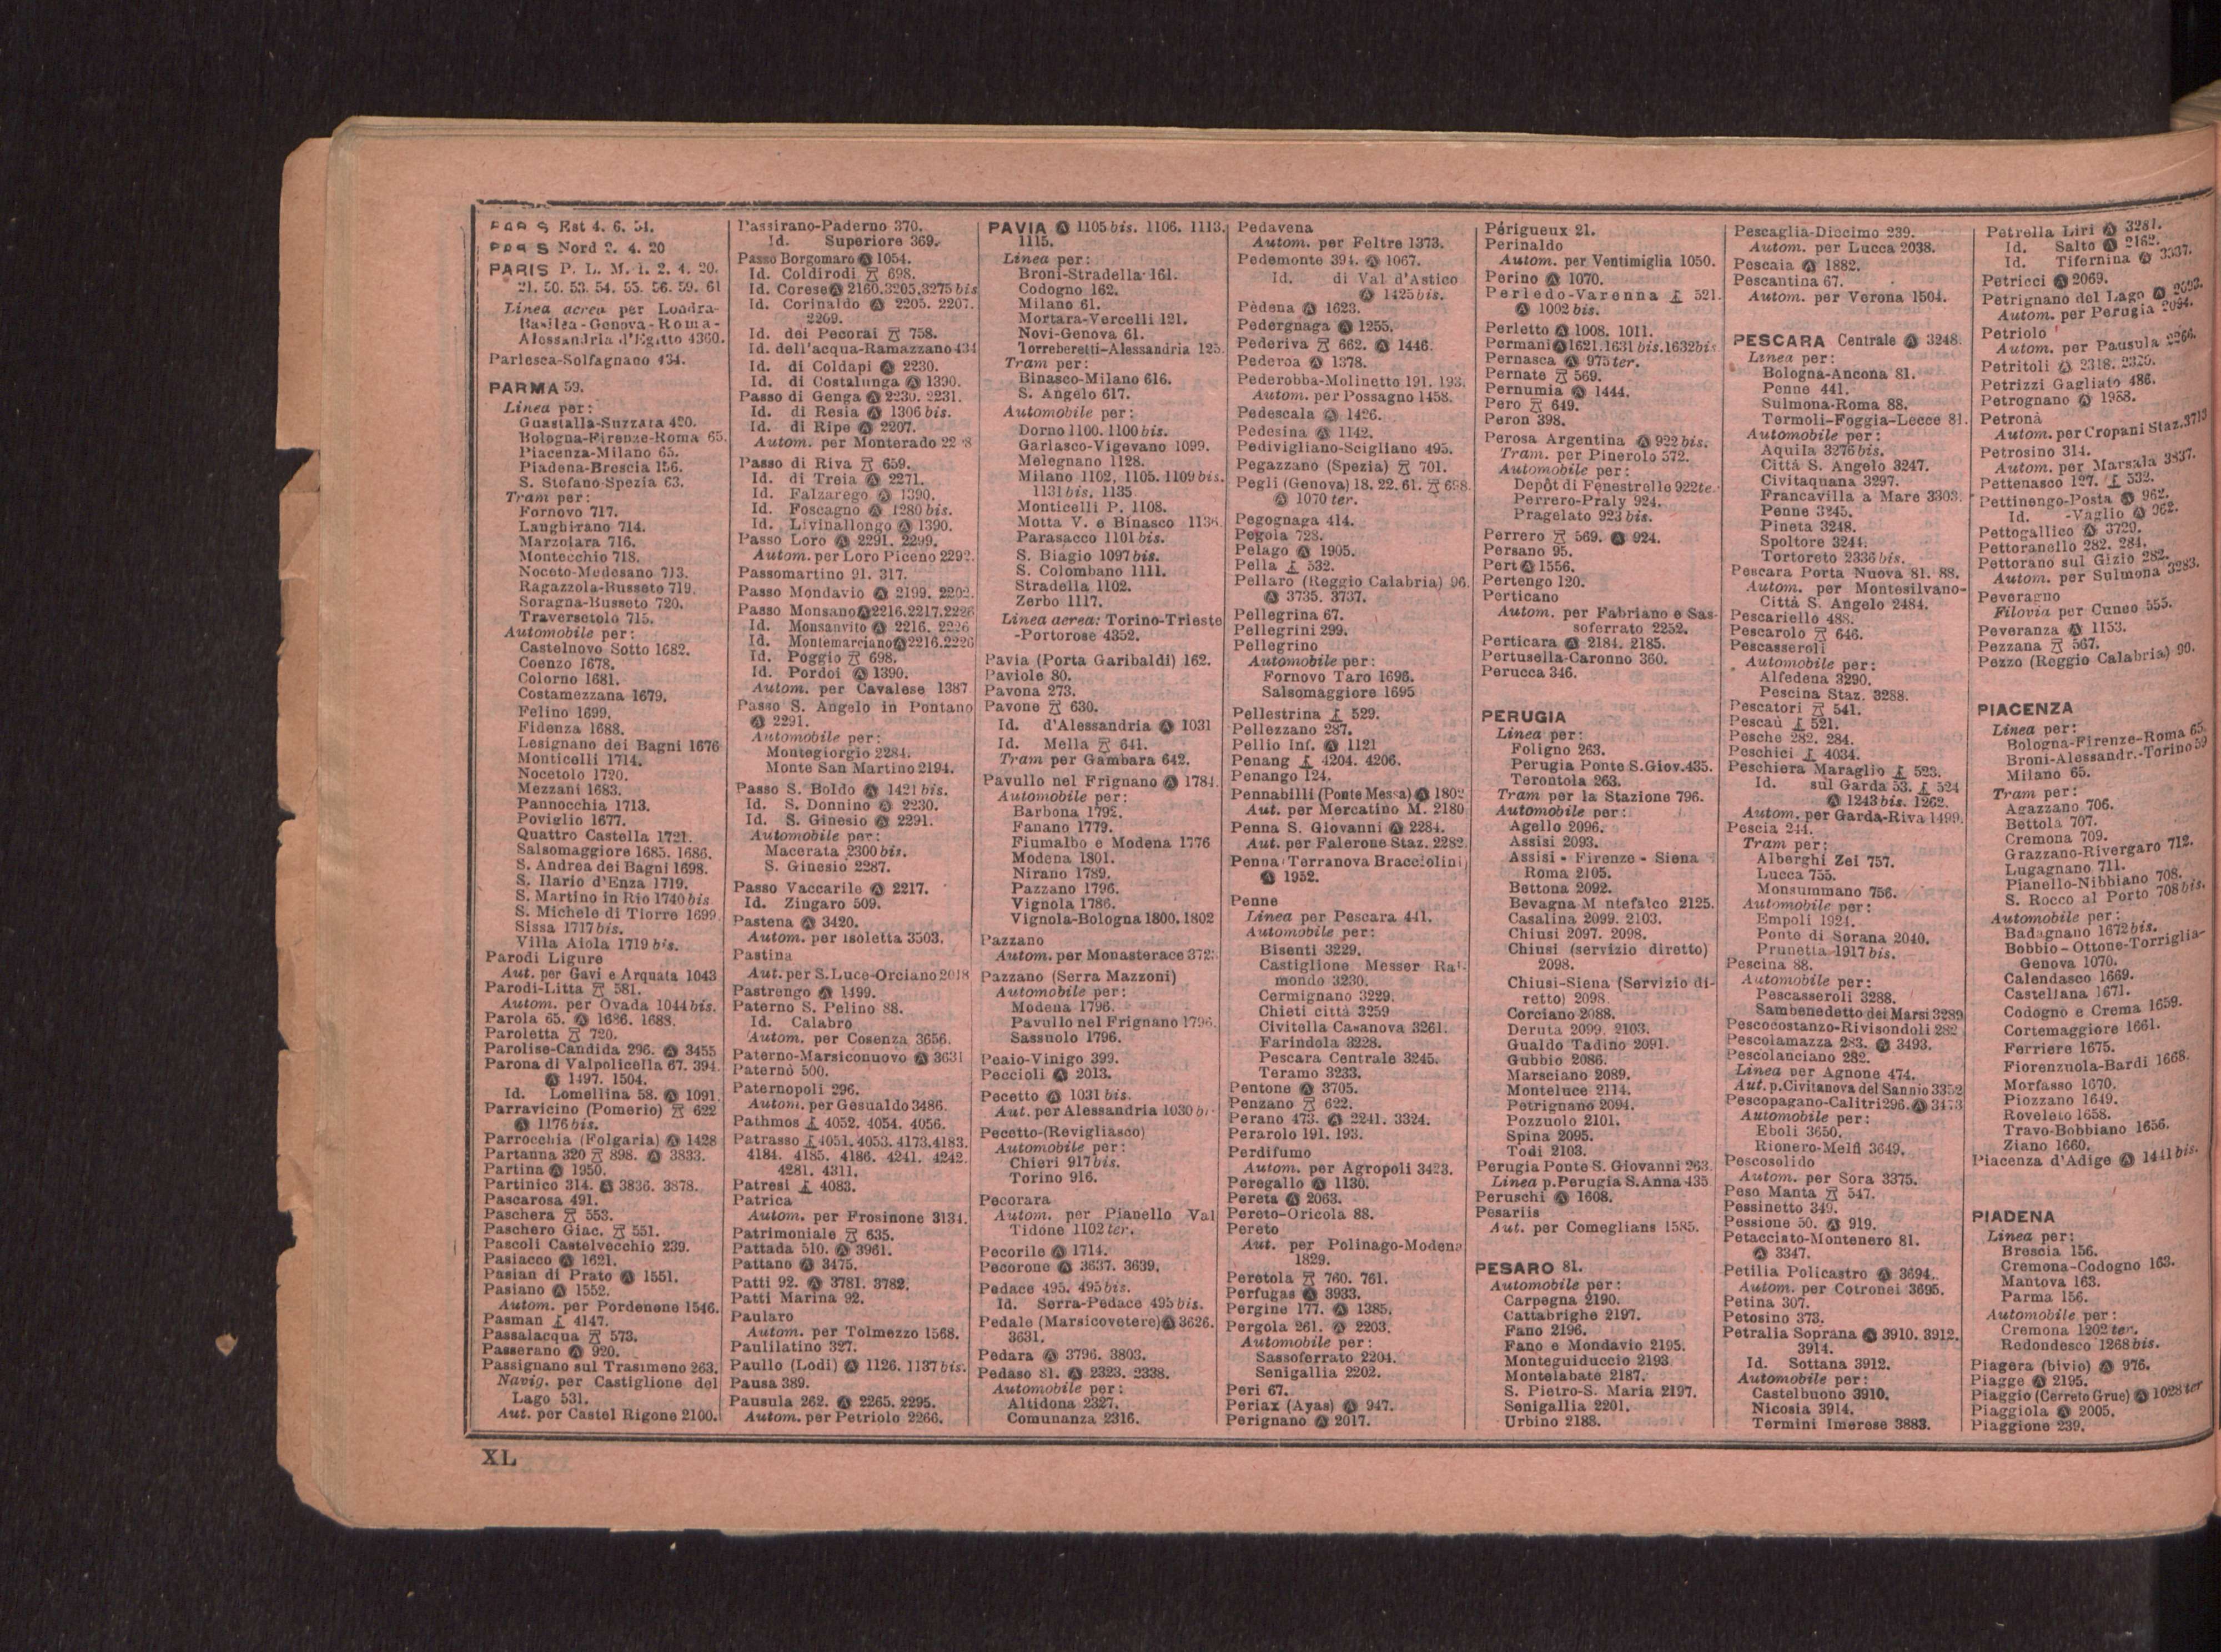 Est 4. 6. 54.
Nord 2. 4. 20
PARIS P. L. M. 1. 2. 4. 20.
21. 50. 53. 54. 55. 56. 59. 61
Linea aerea per Londra-
Basilea-Genova-Roma-
Alessandria d'Egitto 4360.
Parlesca-Solfagnano 434.
PARMA 59.
Linea per:
Guastalla-Suzzara 420.
Bologna-Firenze-Roma 65.
Piacenza-Milano 65.
Piadena-Brescia 156.
S. Stefano-Spezia 63.
Tram per:
Fornovo 717.
Langhirano 714.
Marzolara 716.
Montecchio 718.
Noceto-Medesano 713.
Ragazzola-Busseto 719.
Soragna-Busseto 720.
Traversetolo 715.
Automobile per:
Castelnovo Sotto 1682.
Coenzo 1678.
Colorno 1681.
Costamezzana 1679.
Felino 1699.
Fidenza 1688.
Lesignano dei Bagni 1676
Monticelli 1714.
Nocetolo 1720.
Mezzani 1683.
Pannocchia 1713.
Poviglio 1677.
Quattro Castella 1721.
Salsomaggiore 1685. 1686.
S. Andrea dei Bagni 1698.
S. Ilario d'Enza 1719.
S. Martino in Rio 1740 bis
S. Michele di Tiorre 1699
Sissa 1717 bis.
Villa Aiola 1719 bis.
Parodi Ligure
Aut. per Gavi e Arquata 1043
Parodi-Litta 581.
Autom. per Ovada 1044 bis.
Parola 65. Ⓐ 1686. 1688.
Paroletta 720.
Parolise-Candida 296. Ⓐ 3455
Parona di Valpolicella 67. 394.
Ⓐ 1497. 1504.
Id. Lomellina 58. Ⓐ 1091.
Parravicino (Pomerio) 622
Ⓐ 1176 bis.
Parrocchia (Folgaria) Ⓐ 1428
Partanna 320 898. Ⓐ 3833.
Partina Ⓐ 1950.
Partinico 314. Ⓐ 3836. 3878.
Pascarosa 491.
Paschera 553.
Paschero Giac. 551.
Pascoli Castelvecchio 239.
Pasiacco Ⓐ 1621.
Pasian di Prato Ⓐ 1551.
Pasiano Ⓐ 1552.
Autom. per Pordenone 1546.
Pasman 4147.
Passalacqua 573.
Passerano Ⓐ 920.
Passignano sul Trasimeno 263.
Navig. per Castiglione del
Lago 531.
Aut. per Castel Rigone 2100.
Passirano-Paderno 370.
Id. Superiore 369.
Passo Borgomaro Ⓐ 1054.
Id. Coldirodi 698.
Id. Corese Ⓐ 2160.3205.3275 bis
Id. Corinaldo Ⓐ 2205. 2207.
2209.
Id. dei Pecorai 758.
Id. dell'acqua-Ramazzano 434
Id. di Coldapi Ⓐ 2230.
Id. di Costalunga Ⓐ 1390.
Passo di Genga Ⓐ 2230. 2231.
Id. di Resia Ⓐ 1306 bis.
Id. di Ripe Ⓐ 2207.
Autom. per Monterado
Passo di Riva 659.
Id. di Treia Ⓐ 2271.
Id. Falzarego Ⓐ 1390.
Id. Foscagno Ⓐ 1280 bis.
Id. Livinallongo Ⓐ 1390.
Passo Loro Ⓐ 2291. 2299.
Autom. per Loro Piceno 2292.
Passomartino 91. 317.
Passo Mondavio Ⓐ 2199. 2202.
Passo Monsano Ⓐ 2216.2217.2226
Id. Monsanvito Ⓐ 2216. 2226
Id. Montemarciano Ⓐ 2216.2226
Id. Poggio 698.
Id. Pordoi Ⓐ 1390.
Autom. per Cavalese 1387
Passo S. Angelo in Pontano
Ⓐ 2291.
Automobile per:
Montegiorgio 2284.
Monte San Martino 2194.
Passo S. Boldo Ⓐ 1421 bis.
Id. S. Donnino Ⓐ 2230.
Id. S. Ginesio Ⓐ 2291.
Automobile per:
Macerata 2300 bis.
S. Ginesio 2287.
Passo Vaccarile Ⓐ 2217.
Id. Zingaro 509.
Pastena Ⓐ 3420.
Autom. per Isoletta 3503.
Pastina
Aut. per S. Luce-Orciano 2018
Pastrengo Ⓐ 1499.
Paterno S. Pelino 88.
Id. Calabro
Autom. per Cosenza 3656.
Paterno-Marsiconuovo Ⓐ 3631
Paternò 500.
Paternopoli 296.
Autom. per Gesualdo 3486.
Pathmos 4052. 4054. 4056.
Patrasso 4051. 4053. 4173.4183.
4184. 4185. 4186. 4241. 4242.
4281. 4311.
Patresi 4083.
Patrica
Autom. per Frosinone 3134.
Patrimoniale 635.
Pattada 510. Ⓐ 3961.
Pattano Ⓐ 3475.
Patti 92. Ⓐ 3781. 3782.
Patti Marina 92.
Paularo
Autom. per Tolmezzo 1568.
Paulilatino 327.
Paullo (Lodi) Ⓐ 1126. 1137 bis.
Pausa 389.
Pausula 262. Ⓐ 2265. 2295.
Autom. per Petriolo 2266.
PAVIA Ⓐ 1105 bis. 1106. 1113.
1115.
Linea per:
Broni-Stradella 161.
Codogno 162.
Milano 61.
Mortara-Vercelli 121.
Novi-Genova 61.
Torreberetti-Alessandria 125.
Tram per:
Binasco-Milano 616.
S. Angelo 617.
Automobile per:
Dorno 1100. 1100 bis.
Garlasco-Vigevano 1099.
Melegnano 1128.
Milano 1102. 1105. 1109 bis.
1131 bis. 1135
Monticelli P. 1108.
Motta V. e Binasco 1136.
Parasacco 1101 bis.
S. Biagio 1097 bis.
S. Colombano 1111.
Stradella 1102.
Zerbo 1117.
Linea aerea: Torino-Trieste
-Portorose 4352.
Pavia (Porta Garibaldi) 162.
Paviole 80.
Pavona 273.
Pavone 630.
Id. d'Alessandria Ⓐ 1031
Id. Mella 641.
Tram per Gambara 642.
Pavullo nel Frignano Ⓐ 1784.
Automobile per:
Barbona 1792.
Fanano 1779.
Fiumalbo e Modena 1776
Modena 1801.
Nirano 1789.
Pazzano 1796.
Vignola 1786.
Vignola-Bologna 1800. 1802
Pazzano
Autom. per Monasterace
Pazzano (Serra Mazzoni)
Automobile per:
Modena 1796.
Pavullo nel Frignano 1796.
Sassuolo 1796.
Peaio-Vinigo 399.
Peccioli Ⓐ 2013.
Pecetto Ⓐ 1031 bis.
Aut. per Alessandria 1030
Pecetto-(Revigliasco)
Automobile per:
Chieri 917 bis.
Torino 916.
Pecorara
Autom. per Pianello Val
Tidone 1102 ter.
Pecorile Ⓐ 1714.
Pecorone Ⓐ 3637. 3639.
Pedace 495. 495 bis.
Id. Serra-Pedace 495 bis.
Pedale (Marsicovetere) Ⓐ 3626.
3631.
Pedara Ⓐ 3796. 3803.
Pedaso 81. Ⓐ 2323. 2338.
Automobile per:
Altidona 2327.
Comunanza 2316.
Pedavena
Autom. per Feltre 1373.
Pedemonte 394. Ⓐ 1067.
Id. di Val d'Astico
Ⓐ 1425 bis.
Pèdena Ⓐ 1623.
Pedergnaga Ⓐ 1255.
Pederiva 662. Ⓐ 1446.
Pederoa Ⓐ 1378.
Pederobba-Molinetto 191. 193.
Autom. per Possagno 1458.
Pedescala Ⓐ 1426.
Pedesina Ⓐ 1142.
Pedivigliano-Scigliano 495.
Pegazzano (Spezia) 701.
Pegli (Genova) 18. 22. 61. 698
Ⓐ 1070 ter.
Pegognaga 414.
Pegola 728.
Pelago Ⓐ 1905.
Pella 532.
Pellaro (Reggio Calabria) 96.
Ⓐ 3735. 3737.
Pellegrina 67.
Pellegrini 299.
Pellegrino
Automobile per:
Fornovo Taro 1696.
Salsomaggiore 1695
Pellestrina 529.
Pellezzano 287.
Pellio Inf. Ⓐ 1121
Penang 4204. 4206.
Penango 124.
Pennabilli (Ponte Messa) Ⓐ 1802
Aut. per Mercatino M. 2180
Penna S. Giovanni Ⓐ 2284.
Aut. per Falerone Staz. 2282
Penna (Terranova Bracciolini)
Ⓐ 1952.
Penne
Linea per Pescara 441.
Automobile per:
Bisenti 3229.
Castiglione Messer Rai-
mondo 3230.
Cermignano 3229.
Chieti città 3259
Civitella Casanova 3261.
Farindola 3228.
Pescara Centrale 3245.
Teramo 3233.
Pentone Ⓐ 3705.
Penzano 622.
Perano 473. Ⓐ 2241. 3324.
Perarolo 191. 193.
Perdifumo
Autom. per Agropoli 3423.
Peregallo Ⓐ 1130.
Pereta Ⓐ 2063.
Pereto-Oricola 88.
Pereto
Aut. per Polinago-Modena
1829.
Peretola 760. 761.
Perfugas Ⓐ 3933.
Pergine 177. Ⓐ 1385.
Pergola 261. Ⓐ 2203.
Automobile per:
Sassoferrato 2204.
Senigallia 2202.
Peri 67.
Periax (Ayas) Ⓐ 947.
Perignano Ⓐ 2017.
Périgueux 21.
Perinaldo
Autom. per Ventimiglia 1050.
Perino Ⓐ 1070.
Perledo-Varenna 521.
Ⓐ 1002 bis.
Perletto Ⓐ 1008. 1011.
Permani Ⓐ 1621.1631 bis.1632 bis
Pernasca Ⓐ 975 ter.
Pernate 569.
Pernumia Ⓐ 1444.
Pero 649.
Peron 398.
Perosa Argentina Ⓐ 922 bis.
Tram. per Pinerolo 572.
Automobile per:
Depôt di Fenestrelle 922 te
Perrero-Praly 924.
Pragelato 923 bis.
Perrero 569. Ⓐ 924.
Persano 95.
Pert Ⓐ 1556.
Pertengo 120.
Perticano
Autom. per Fabriano e Sas-
soferrato 2252.
Perticara Ⓐ 2184. 2185.
Pertusella-Caronno 360.
Perucca 346.
PERUGIA
Linea per:
Foligno 263.
Perugia Ponte S.Giov. 435.
Terontola 263.
Tram per la Stazione 796.
Automobile per:
Agello 2096.
Assisi 2093.
Assisi - Firenze - Siena
Roma 2105.
Bettona 2092.
Bevagna-M ntefalco 2125.
Casalina 2099. 2103.
Chiusi 2097. 2098.
Chiusi (servizio diretto)
2098.
Chiusi-Siena (Servizio di-
retto) 2098.
Corciano 2088.
Deruta 2099. 2103.
Gualdo Tadino 2091.
Gubbio 2086.
Marsciano 2089.
Monteluce 2114.
Petrignano 2094.
Pozzuolo 2101.
Spina 2095.
Todi 2103.
Perugia Ponte S. Giovanni 263.
Linea p.Perugia S.Anna 435
Peruschi Ⓐ 1608.
Pesariis
Aut. per Comeglians 1585.
PESARO 81.
Automobile per:
Carpegna 2190.
Cattabrighe 2197.
Fano 2196.
Fano e Mondavio 2195.
Monteguiduccio 2193
Montelabate 2187.
S. Pietro-S. Maria 2197.
Senigallia 2201.
Urbino 2188.
Pescaglia-Diecimo 239.
Autom. per Lucca 2038.
Pescaia Ⓐ 1882.
Pescantina 67.
Autom. per Verona 1504.
PESCARA Centrale Ⓐ 3248.
Linea per:
Bologna-Ancona 81.
Penne 441.
Sulmona-Roma 88.
Termoli-Foggia-Lecce 81.
Automobile per:
Aquila 3276 bis.
Città S. Angelo 3247.
Civitaquana 3297.
Francavilla a Mare 3303.
Penne 3245.
Pineta 3248.
Spoltore 3244.
Tortoreto 2336 bis.
Pescara Porta Nuova 81. 88.
Autom. per Montesilvano-
Città S. Angelo 2484.
Pescariello 488.
Pescarolo 646.
Pescasseroli
Automobile per:
Alfedena 3290.
Pescina Staz. 3288.
Pescatori 541.
Pescaù 521.
Pesche 282. 284.
Peschici 4034.
Peschiera Maraglio 523.
Id. sul Garda 53. 524
Ⓐ 1243 bis. 1262.
Autom. per Garda-Riva 1499.
Pescia 244.
Tram per:
Alberghi Zei 757.
Lucca 755.
Monsummano 756.
Automobile per:
Empoli 1924.
Ponte di Sorana 2040.
Prunetta 1917 bis.
Pescina 88.
Automobile per:
Pescasseroli 3288.
Sambenedetto dei Marsi 3289
Pescocostanzo-Rivisondoli 282
Pescolamazza 283. Ⓐ 3493.
Pescolanciano 282.
Linea per Agnone 474.
Aut. p.Civitanova del Sannio 3352
Pescopagano-Calitri 296. Ⓐ 3473
Automobile per:
Eboli 3650.
Rionero-Melfi 3649.
Pescosolido
Autom. per Sora 3375.
Peso Manta 547.
Pessinetto 349.
Pessione 50. Ⓐ 919.
Petacciato-Montenero 81.
Ⓐ 3347.
Petilia Policastro Ⓐ 3694.
Autom. per Cotronei 3695.
Petina 307.
Petosino 373.
Petralia Soprana Ⓐ 3910. 3912.
3914.
Id. Sottana 3912.
Automobile per:
Castelbuono 3910.
Nicosia 3914.
Termini Imerese 3883.
Petrella Liri Ⓐ 3281.
Id. Salto Ⓐ 2162.
Id. Tifernina Ⓐ 3337.
Petricci Ⓐ 2069.
Petrignano del Lago Ⓐ 2093.
Autom. per Perugia 2094.
Petriolo
Autom. per Pausula 2266.
Petritoli Ⓐ 2318. 2320.
Petrizzi Gagliato 486.
Petrognano Ⓐ 1988.
Petronà
Autom. per Cropani Staz. 3713
Petrosino 314.
Autom. per Marsala 3837.
Pettenasco 127. 532.
Pettinengo-Posta Ⓐ 962.
Id. -Vaglio Ⓐ 962.
Pettogallico Ⓐ 3729.
Pettoranello 282. 284.
Pettorano sul Gizio 282.
Autom. per Sulmona 3283.
Peveragno
Filovia per Cuneo 555.
Peveranza Ⓐ 1153.
Pezzana 567.
Pezzo (Reggio Calabria) 90.
PIACENZA
Linea per:
Bologna-Firenze-Roma 65.
Broni-Alessandr.-Torino 59
Milano 65.
Tram per:
Agazzano 706.
Bettola 707.
Cremona 709.
Grazzano-Rivergaro 712.
Lugagnano 711.
Pianello-Nibbiano 708.
S. Rocco al Porto 708 bis.
Automobile per:
Badagnano 1672 bis.
Bobbio-Ottone-Torriglia-
Genova 1070.
Calendasco 1669.
Castellana 1671.
Codogno e Crema 1659.
Cortemaggiore 1661.
Ferriere 1675.
Fiorenzuola-Bardi 1668.
Morfasso 1670.
Piozzano 1649.
Roveleto 1658.
Travo-Bobbiano 1656.
Ziano 1660.
Piacenza d'Adige Ⓐ 1441 bis.
PIADENA
Linea per:
Brescia 156.
Cremona-Codogno 163.
Mantova 163.
Parma 156.
Automobile per:
Cremona 1202 ter.
Redondesco 1268 bis.
Piagera (bivio) Ⓐ 976.
Piagge Ⓐ 2195.
Piaggio (Cerreto Grue) Ⓐ 1028 ter
Piaggiola Ⓐ 2005.
Piaggione 239.
XL